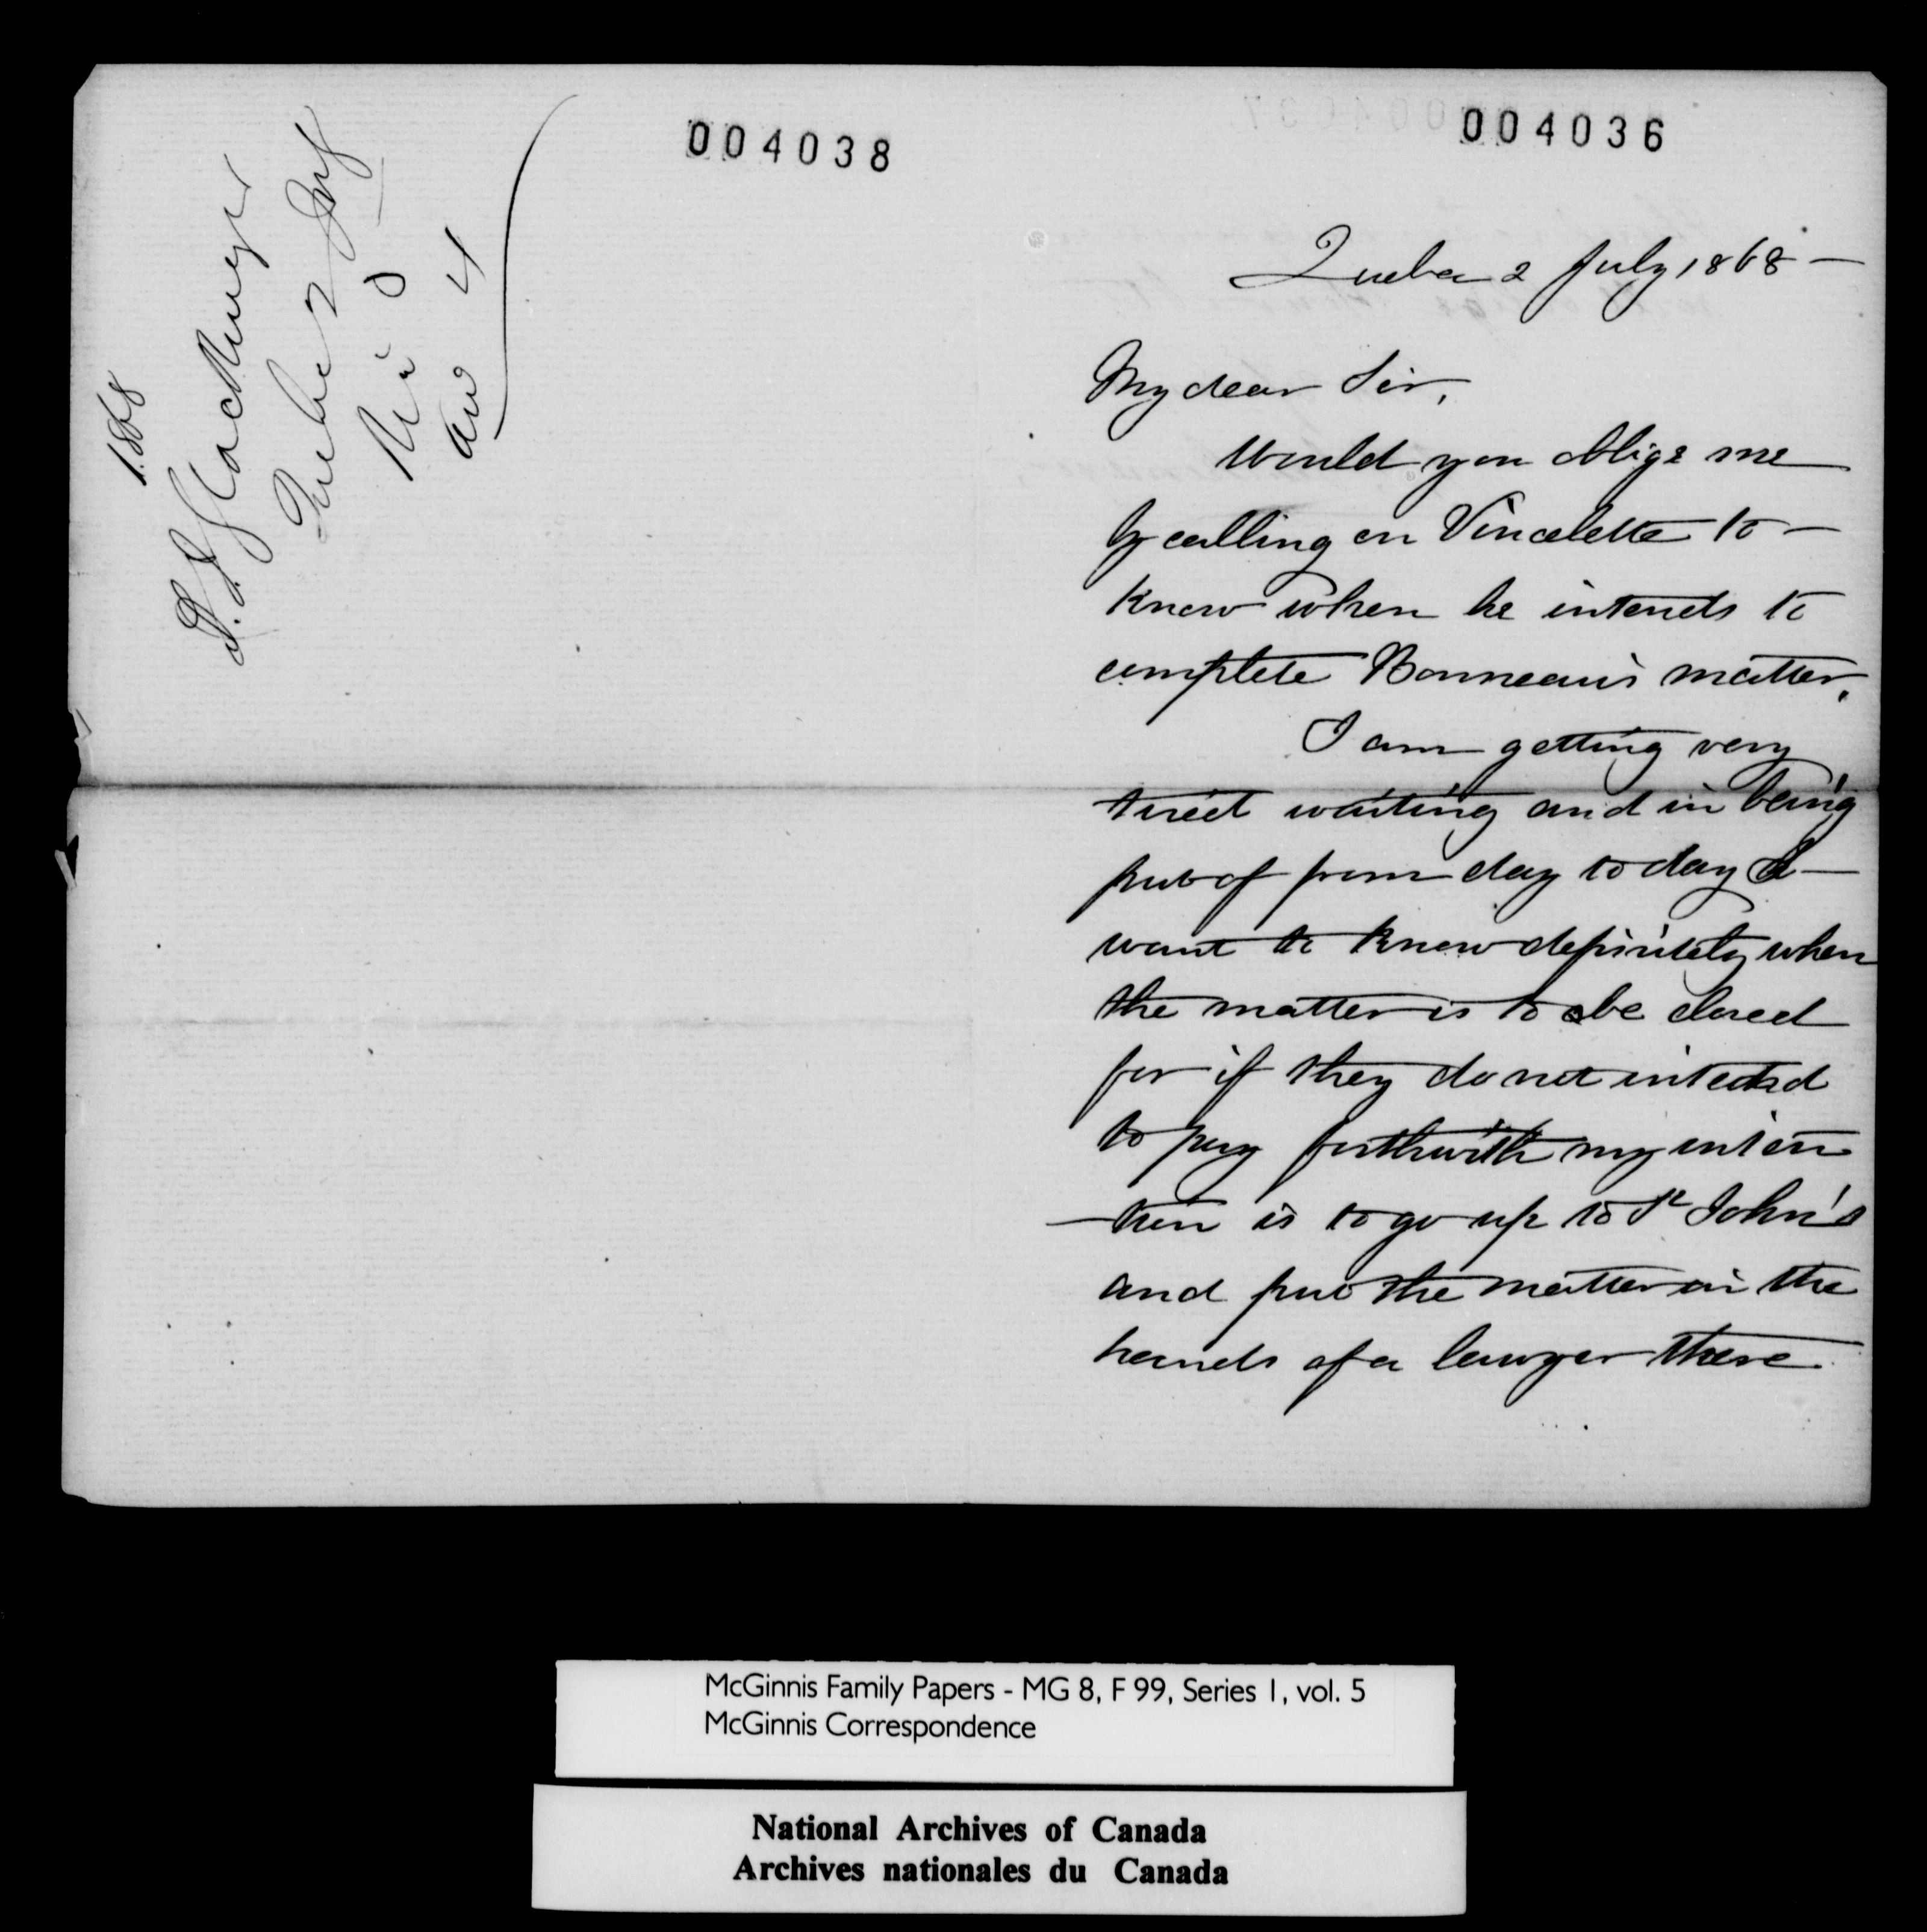 004038
1868
Quebec 2 July
Rec 3
an 4
004036
Quebec 2 July 1868 —
My dear Sir,
Would you oblige me
by calling on Vincelette to —
know when he intends to
complete Bonneau's matter.
I am getting very
tired waiting and in being
put of from day to day I —
want to know definitely when
the matter is to be closed
for if they do not intend
to pay forthwith my inten
— tion is to go up to St John's
and put the matter in the
hands of a lawyer there.
McGinnis Family Papers - MG 8, F 99, Series 1, vol. 5
McGinnis Correspondence
National Archives of Canada
Archives nationales du Canada